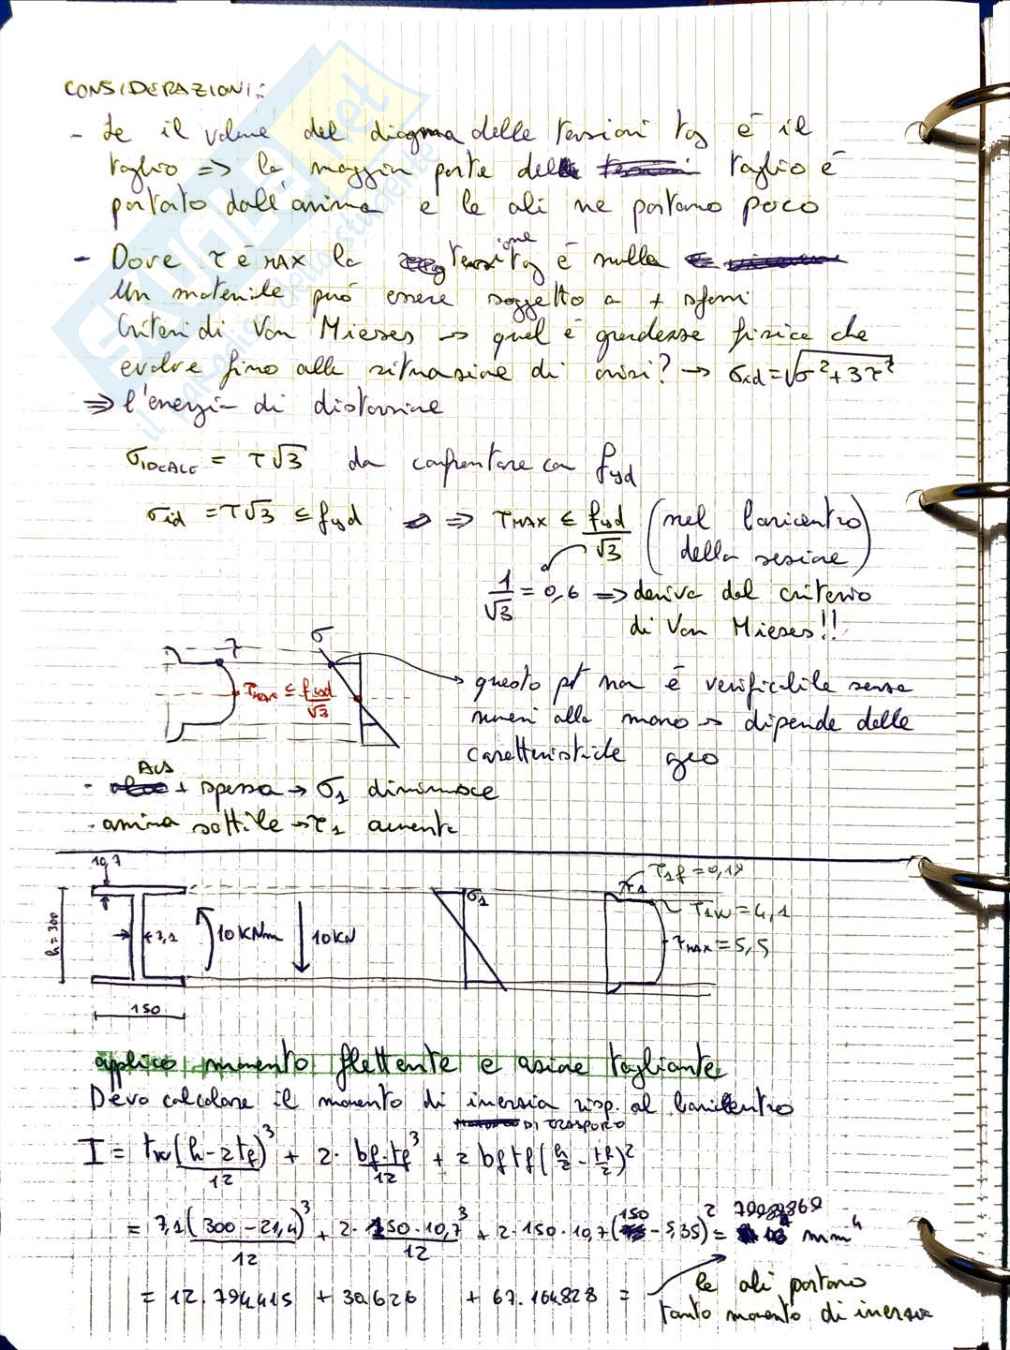 CONSIDERAZIONI:
- Se il volume del diagramma delle tensioni τzy è il
taglio => la maggior parte del taglio è
portato dall'anima e le ali ne portano poco
- Dove τ è MAX la tensione è nulla
Un materiale può essere soggetto a + sforzi
Criteri di Von Mieses → qual è grandezza fisica che
evolve fino alla situazione di crisi? → σid = √σ²+3τ²
=> l'energia di distorsione
σIDEALE = τ√3 da confrontare con fyd
σid = τ√3 ≤ fyd => τMAX ≤ fyd/√3 (nel baricentro
della sezione)
1/√3 = 0,6 => deriva dal criterio
di Von Mieses!!
σ
τMAX ≤ fyd/√3
questo pt non è verificabile senza
numeri alla mano → dipende dalle
caratteristiche geo
- ALI + spessa → σ1 diminuisce
- anima sottile → τ1 aumenta
10,7
h = 300
7,1
10 KNm
10 KN
150
σ1
τ1
τ1f = 0,19
τ1w = 4,1
τMAX = 5,5
applico momento flettente e azione tagliante
Devo calcolare il momento di inersia risp. al baricentro
DI TRASPORTO
I = tw(h-2tf)³/12 + 2· bf·tf³/12 + 2 bf tf (h/2 - tf/2)²
= 7,1(300-21,4)³/12 + 2·150·10,7³/12 + 2·150·10,7(150-5,35)² = 79989869 mm⁴
= 12.794.415 + 30.626 + 67.164.828 =
le ali portano
tanto momento di inersia